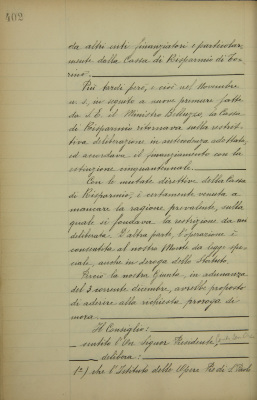 402
da altri enti finanziatori e particolar-
mente dalla Cassa di Risparmio di To-
rino.
Più tardi però, e cioè nel Novembre
u. s., in seguito a nuove premure fatte
da S. E. il Ministro la Cassa
di Risparmio ritornava sulla restrit-
tiva deliberazione in antecedenza adottata,
ed accordava il finanziamento con la
estinzione cinquantennale.
Con le mutate direttive della Cassa
di Risparmio, è certamente venuta a
mancare la ragione prevalente, sulla
quale si fondava la restrizione da noi
deliberata. D'altra parte, l'operazione è
consentita al nostro Monte da legge spe-
ciale, anche in deroga dello Statuto.
Perciò la nostra Giunta, in adunanza
del 3 corrente dicembre, avrebbe proposto
di aderire alla richiesta proroga di
mora.
Il Consiglio:
sentito l'On. Signor Presidente,
delibera:
1°) che l'Istituto delle Opere Pie di S. Paolo